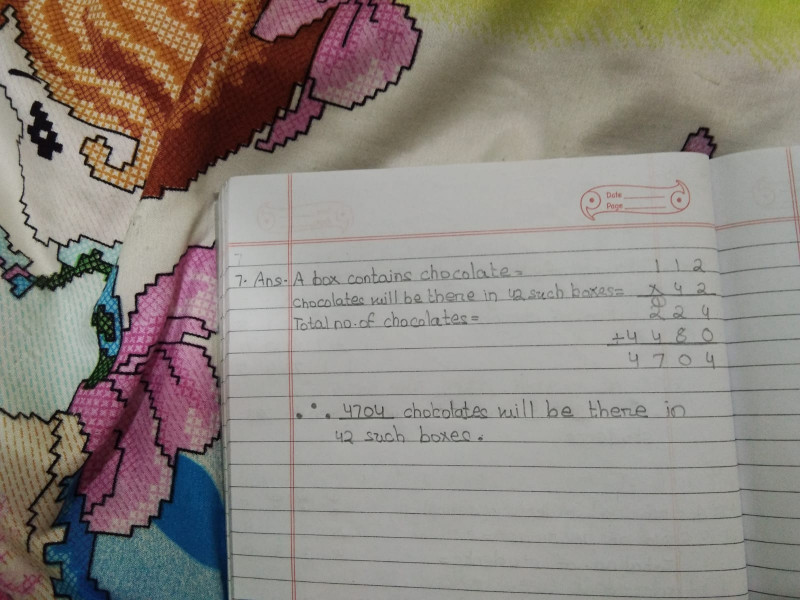 Date
Page
7
7. Ans. A box contains chocolate = 112
chocolates will be there in 42 such boxes = x 42
Total no. of chocolates = 224
+4480
4704
∴ 4704 chocolates will be there in
42 such boxes.